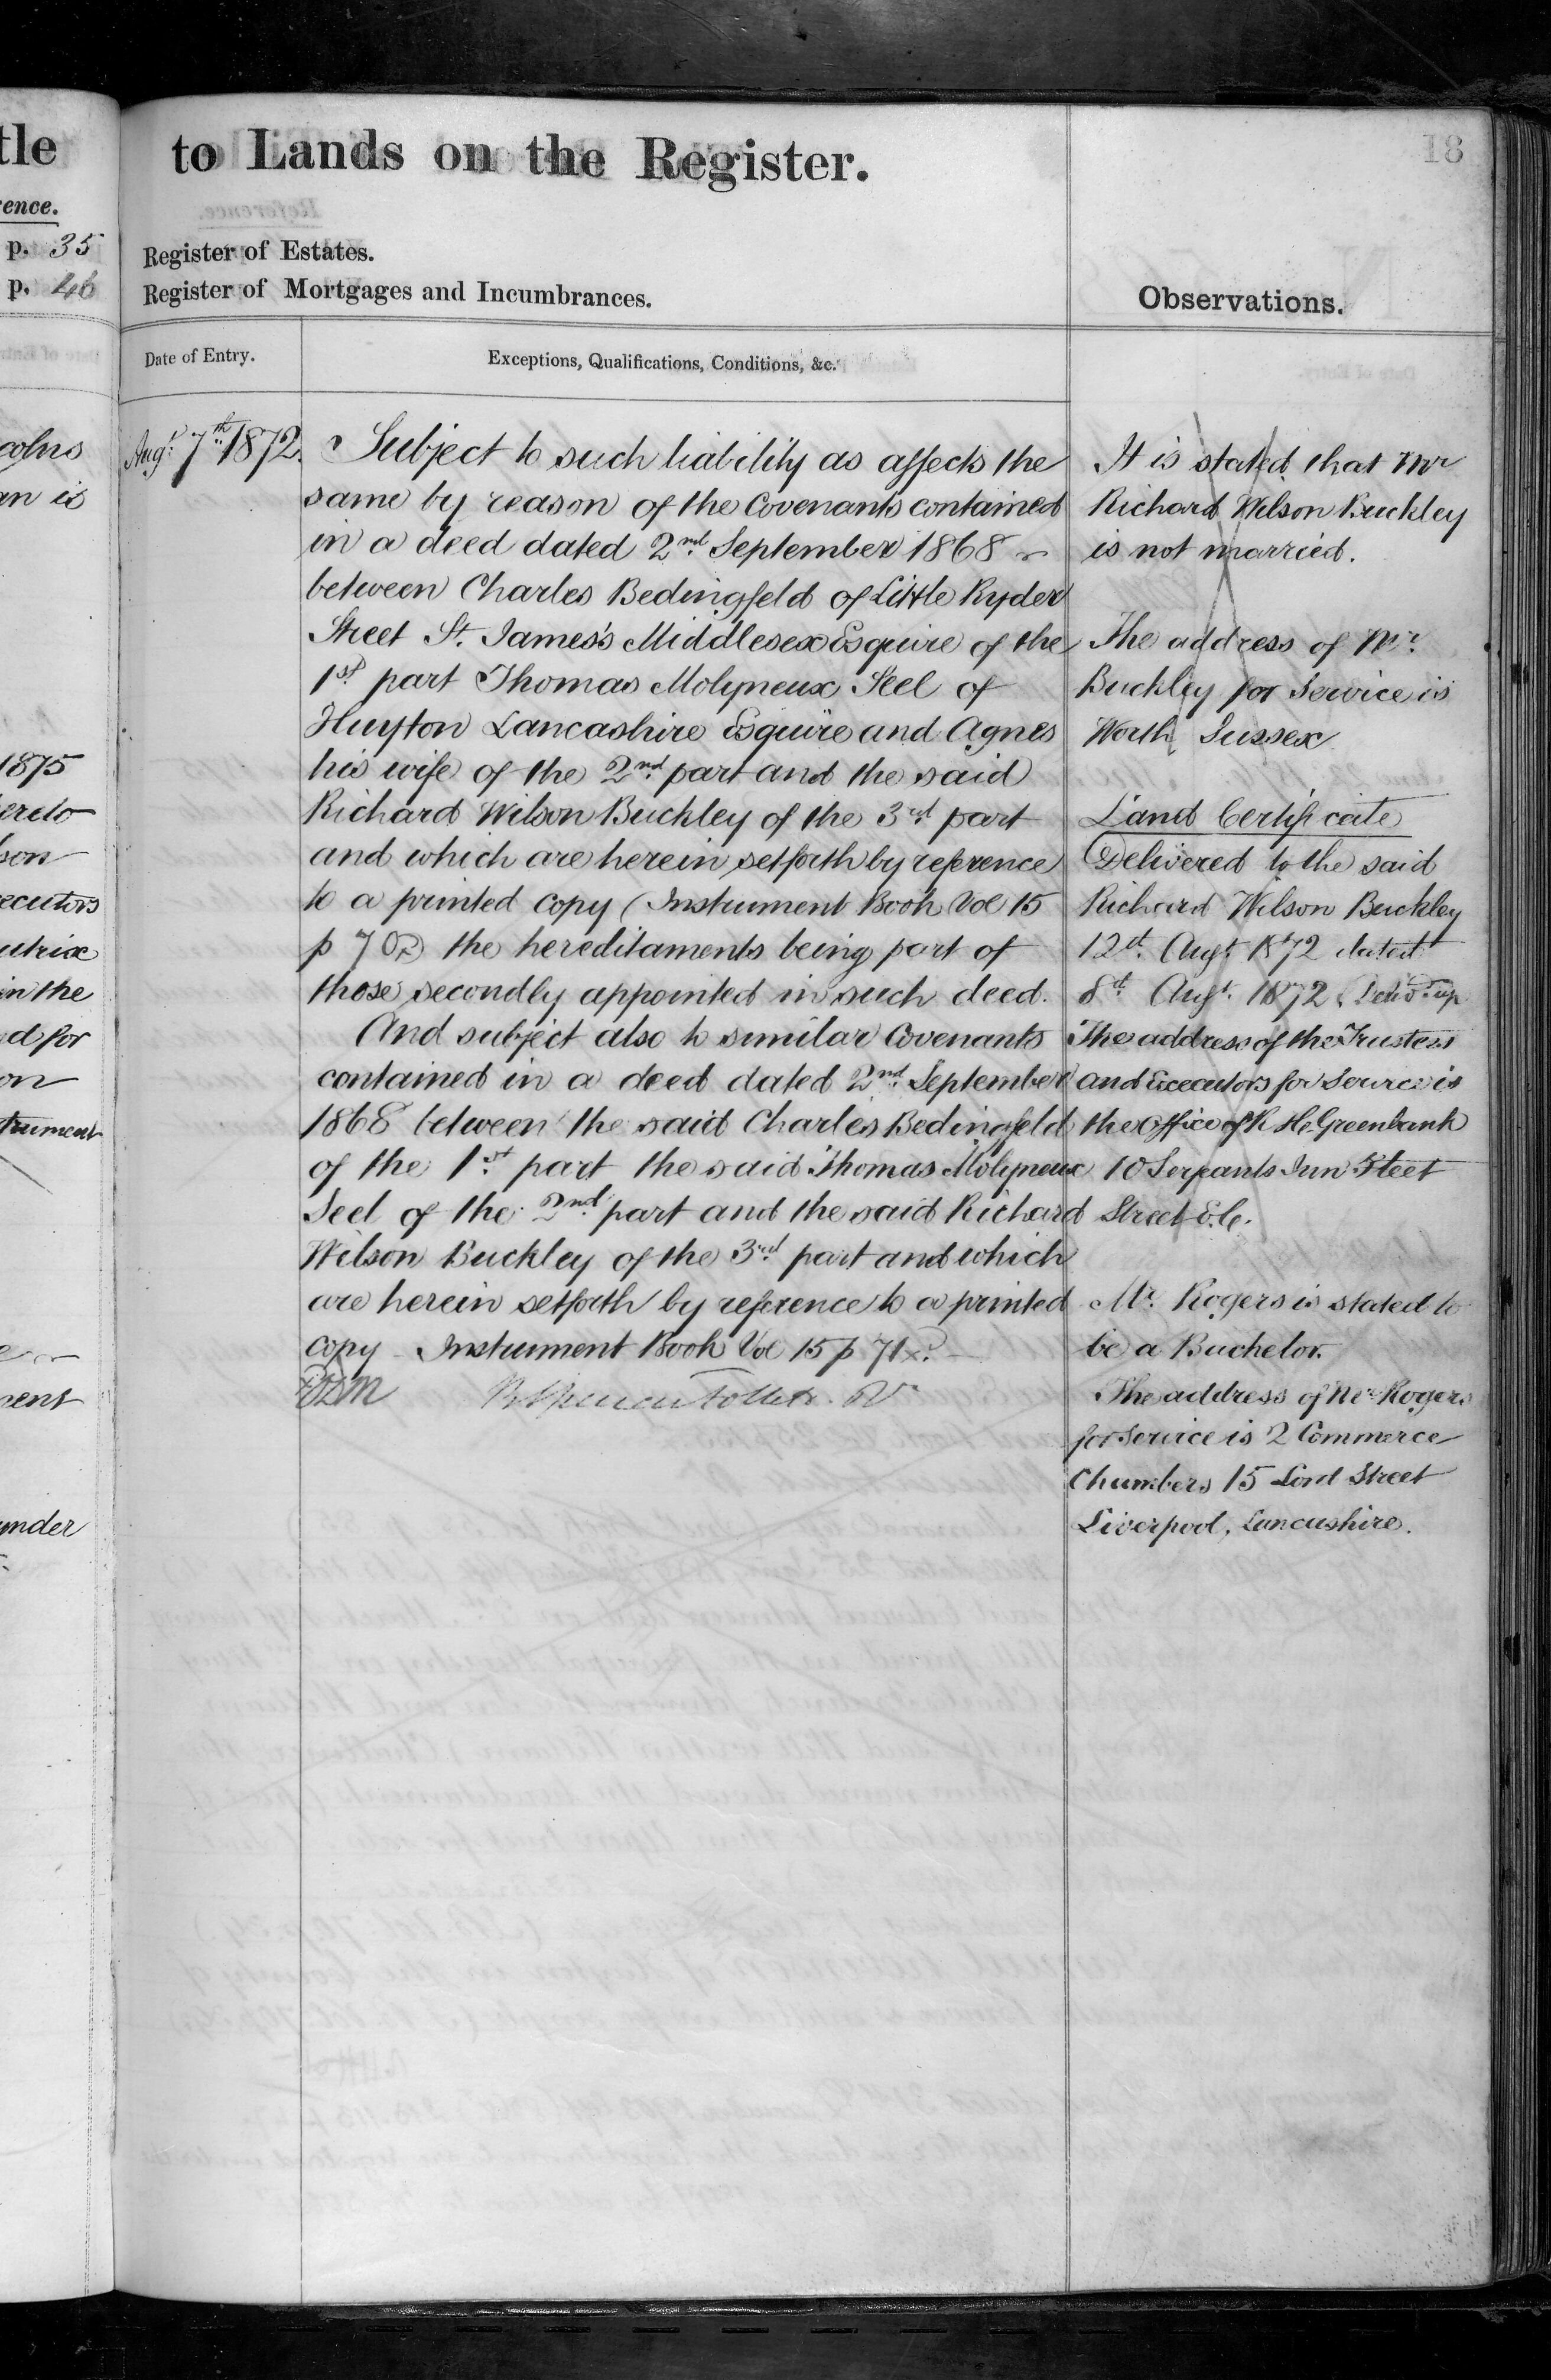 tle
ence.
p. 35
p. 46
colns
an is
1875
ereto
son
ecutors
utrix
in the
ed for
on
trument
ent
under
18
to Lands on the Register.
Register of Estates.
Register of Mortgages and Incumbrances.
Date of Entry.
Exceptions, Qualifications, Conditions, &c.
Augt. 7th 1872.
Subject to such liability as affects the
same by reason of the Covenants contained
in a deed dated 2nd September 1868
between Charles Bedingfeld of Little Ryder
Street St. James's Middlesex Esquire of the
1st part Thomas Molyneux Seel of
Huyton Lancashire Esquire and Agnes
his wife of the 2nd part and the said
Richard Wilson Buckley of the 3rd part
and which are herein setforth by reference
to a printed copy (Instrument Book Vol 15
p 70) the hereditaments being part of
those secondly appointed in such deed.
And subject also to similar Covenants
contained in a deed dated 2nd September
1868 between the said Charles Bedingfeld
of the 1st part the said Thomas Molyneux
Seel of the 2nd part and the said Richard
Wilson Buckley of the 3rd part and which
are herein setforth by reference to a printed
copy Instrument Book Vol 15 p 71
Observations.
It is stated that Mr
Richard Wilson Buckley
is not married.
The address of Mr.
Buckley for Service is
Worth, Sussex
Land Certificate
Delivered to the said
Richard Wilson Buckley
12th Augt. 1872 dated
8th Augt. 1872 Deliv'd up
The address of the Trustees
and Executors for Service is
the Office of R H. Greenbank
10 Serjeants Inn Fleet
Street E.C.
Mr. Rogers is stated to
be a Bachelor.
The address of Mr Rogers
for Service is 2 Commerce
Chambers 15 Lord Street
Liverpool, Lancashire.